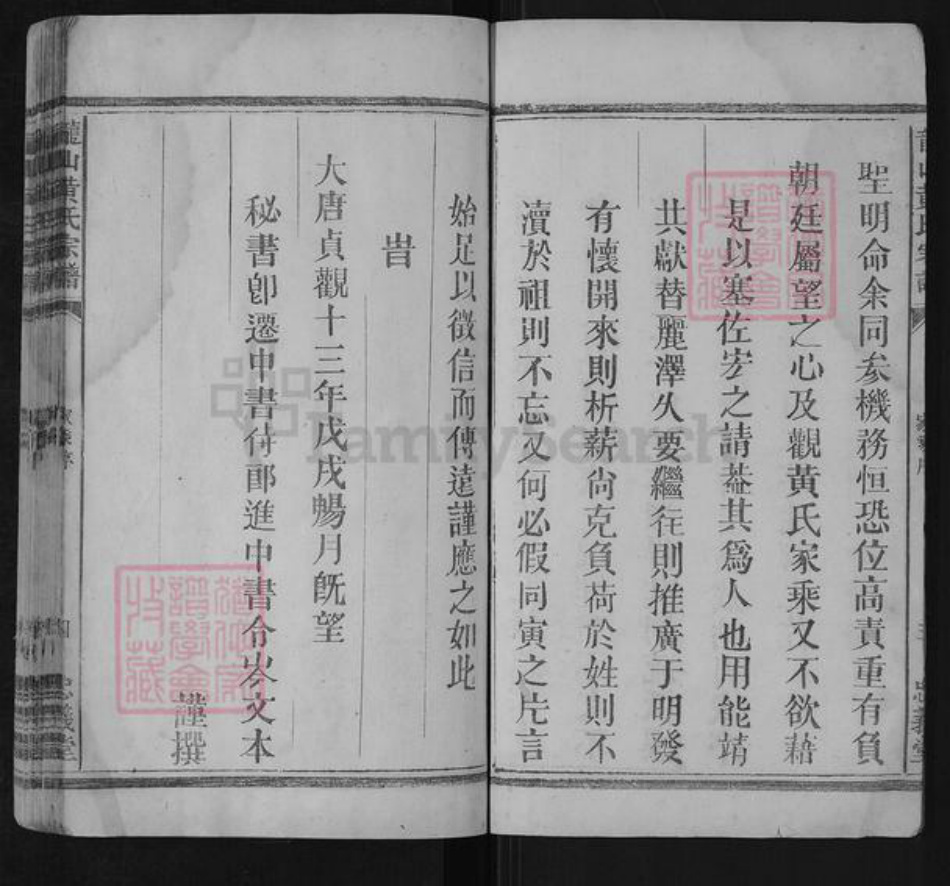 聖明命余同叅機務恒恐位高責重有負
朝廷屬望之心及觀黃氏家乘又不欲藉
是以塞佐安之請葢其爲人也用能靖
共獻替麗澤久要繼徃則推廣于明發
有懷開來則析薪尙克負荷於姓則不
瀆於祖則不忘又何必假同寅之片言
始足以徵信而傳遠謹應之如此
旹
大唐貞觀十三年戊戌暢月旣望
秘書卽遷中書侍郞進中書令岑文本
謹撰
龍山黃氏宗譜
四
忠義堂
FamilySearch